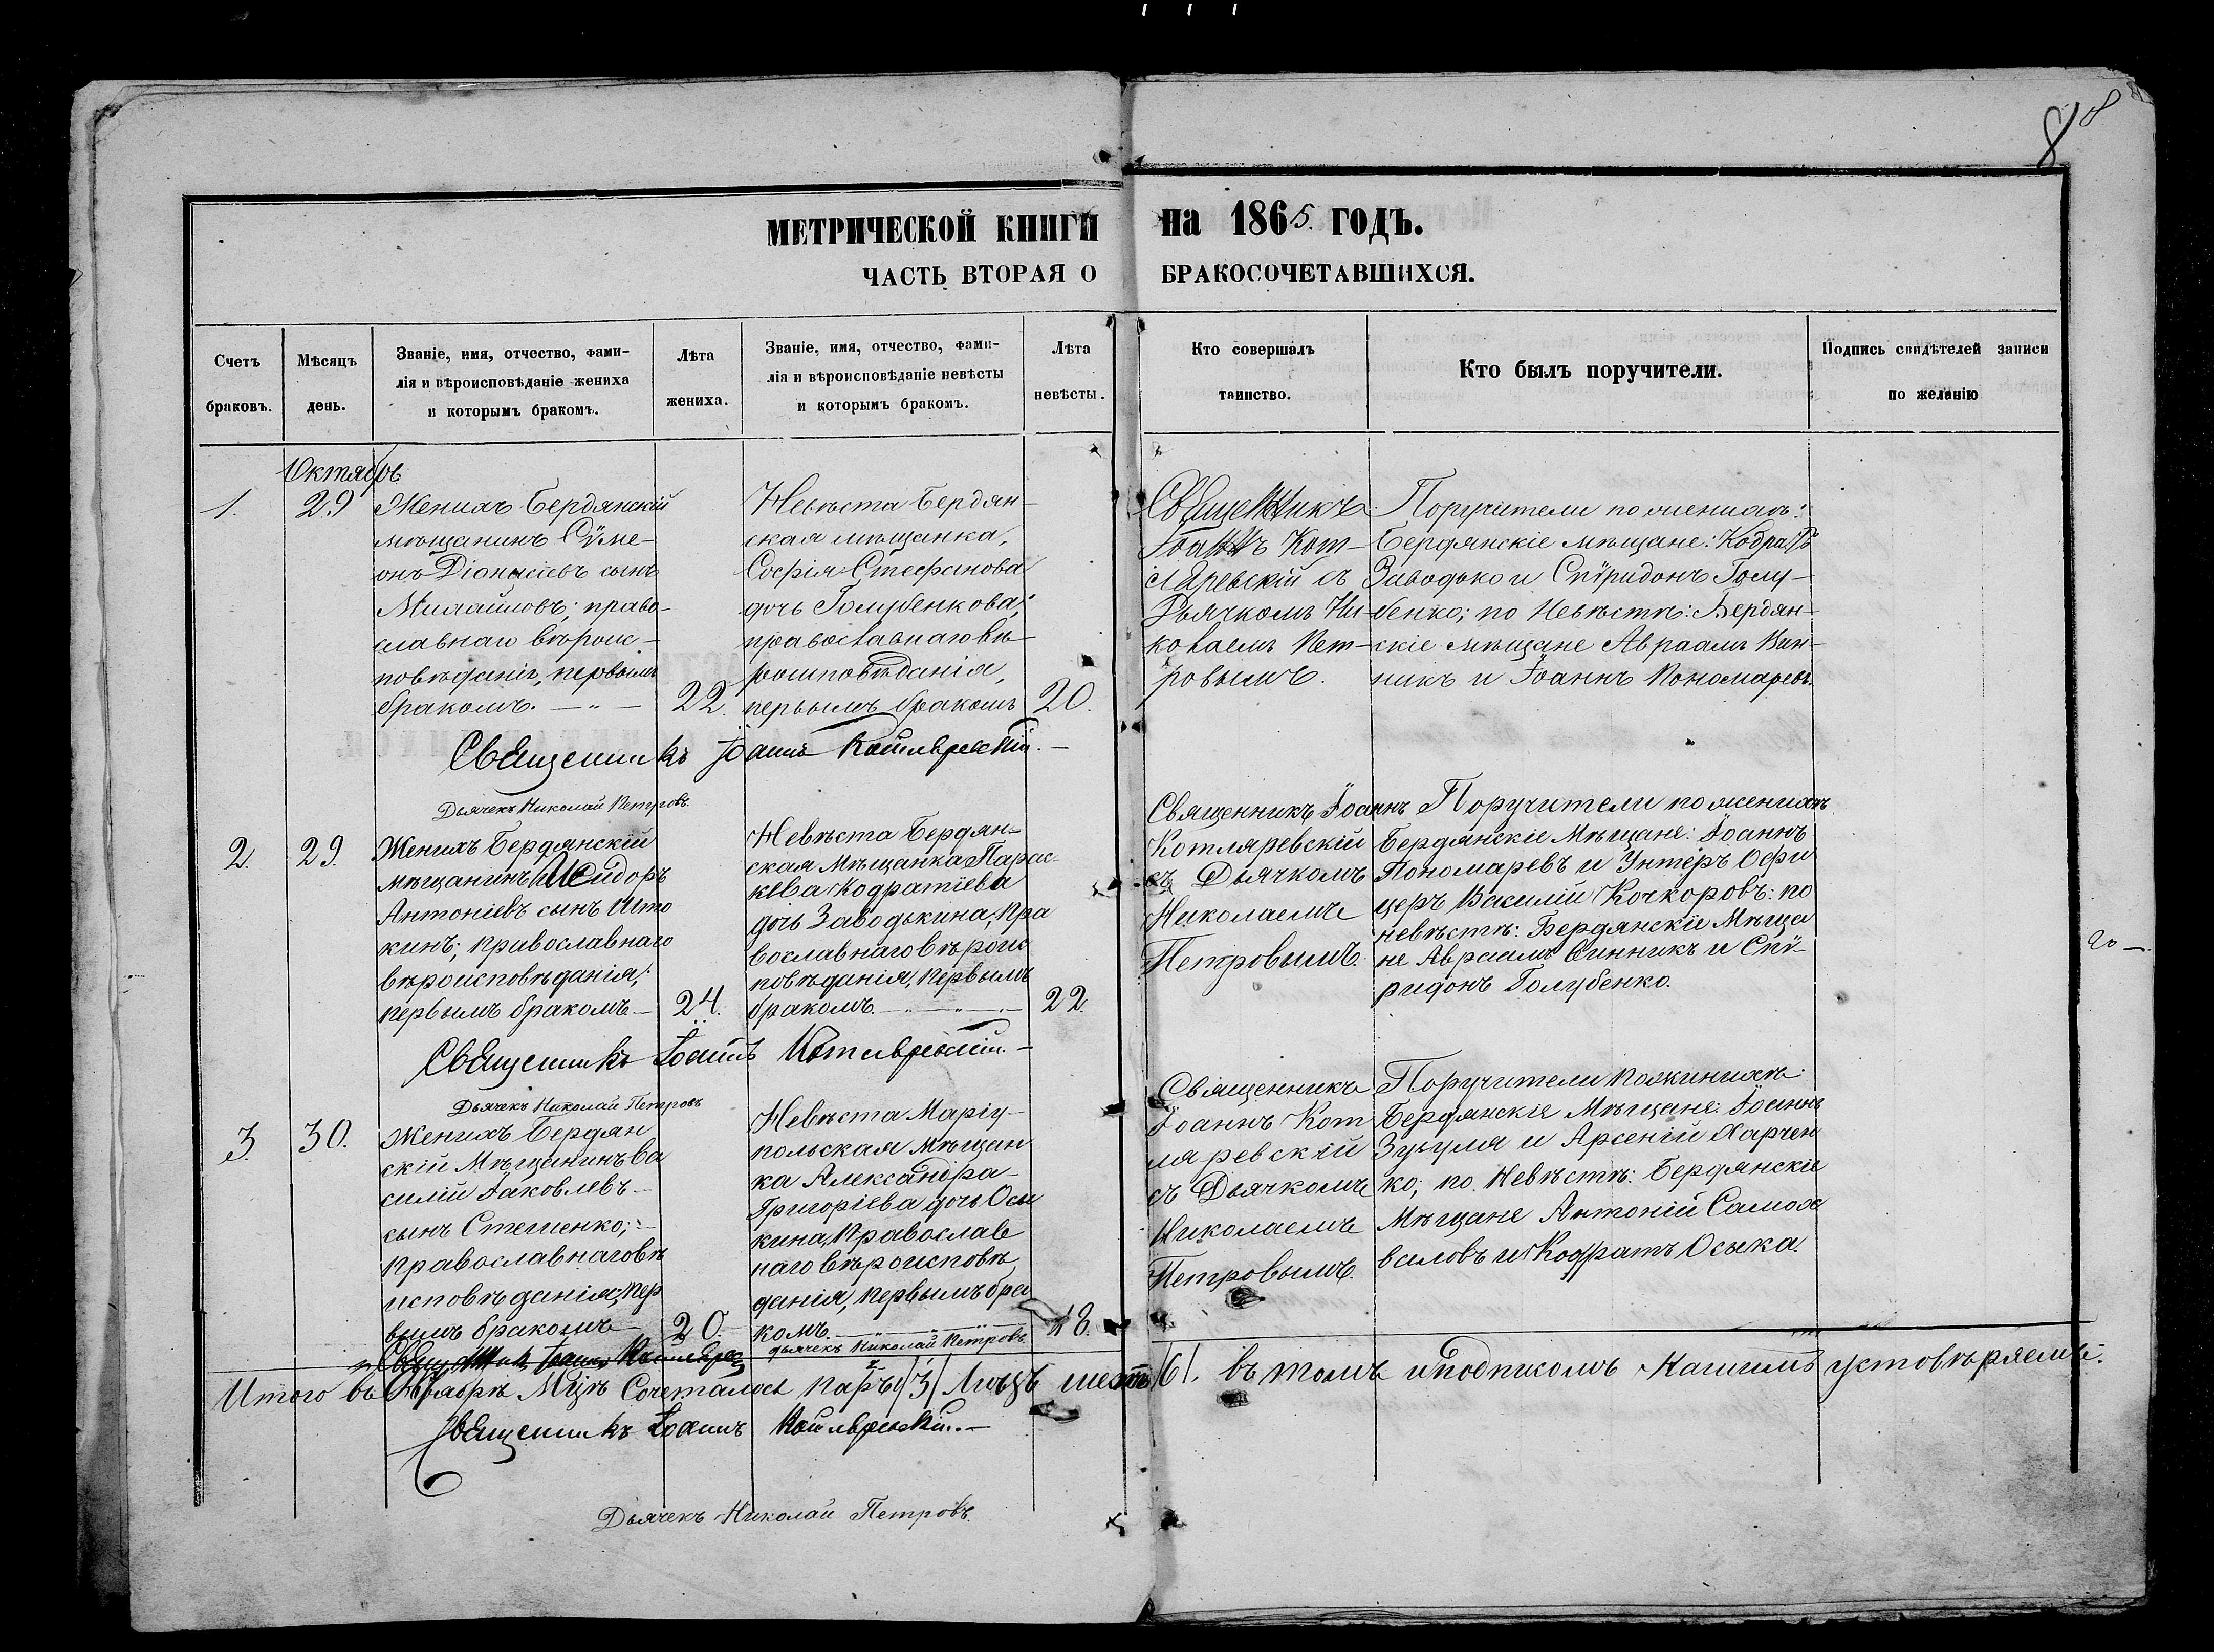 8
МЕТРИЧЕСКОЙ КНИГИ на 1865. ГОДЪ.
ЧАСТЬ ВТОРАЯ О БРАКОСОЧЕТАВШИХСЯ.
Счетъ браковъ.
Мѣсяцъ день.
Званіе, имя, отчество, фами-
лія и вѣроисповѣданіе жениха
и которымъ бракомъ.
Лѣта жениха.
Званіе, имя, отчество, фами-
лія и вѣроисповѣданіе невѣсты
и которымъ бракомъ.
Лѣта невѣсты.
Кто совершалъ
таинство.
Кто былъ поручители.
Подпись свидѣтелей записи
по желанію
Октябрь
1.
29
Женихъ Бердянскій
мѣщанинъ Сѵме-
онъ Діонисіевъ сынъ
Михайловъ; право-
славнаго вѣроис-
повѣданія, первымъ
бракомъ. — „ —
22.
Невѣста Бердян-
ская мѣщанка,
Софія Стефанова
дочь Голубенкова;
православнаго вѣ-
роисповѣданія,
первымъ бракомъ
20.
Священникъ
Іоаннъ Кот-
ляревскій съ
Дьячкомъ Ни-
колаемъ Пет-
ровымъ.
Поручители по женихѣ:
Бердянскіе мѣщане: Кодратъ
Заводько и Спѵридонъ Голу-
бенко; по Невѣстѣ: Бердян-
скіе мѣщане Авраамъ Вин-
никъ и Іоаннъ Пономаревъ.
Священникъ Іоаннъ Котляревскій. —
Дьячекъ Николай Петровъ.
2.
29.
Женихъ Бердянскій
мѣщанинъ Исидоръ
Антоніевъ сынъ Што
кинъ; православнаго
вѣроисповѣданія,
первымъ бракомъ —
24.
Невѣста Бердян-
ская Мѣщанка Парас-
кева Кодратіева
дочь Заводькина, пра
вославнаго вѣроис
повѣданія, первымъ
бракомъ.
22.
Священникъ Іоаннъ
Котляревскій
съ Дьячкомъ
Николаемъ
Петровымъ.
Поручители по женихѣ
Бердянскіе Мѣщане: Іоаннъ
Пономаревъ и Унтеръ Офи
церъ Василій Кочкоровъ: по
невѣстѣ: Бердянскіе Мѣща
не Авраамъ Винникъ и Спѵ-
ридонъ Голубенко.
Священникъ Іоаннъ Котляревскій. —
Дьячекъ Николай Петровъ
3.
30.
Женихъ Бердян
скій Мѣщанинъ Ва
силій Іаковлевъ
сынъ Стешенко;
православнаго вѣ
исповѣданія, пер
вымъ бракомъ —
20.
Невѣста Маріу-
польская мѣщан
ка Александра
Григоріева дочь Осы
кина, Православ
наго вѣроисповѣ
данія, первымъ бра
комъ.
18.
Священникъ
Іоаннъ Кот
ляревскій
съ Дьячкомъ
Николаемъ
Петровымъ.
Поручители по жинихѣ
Бердянскіе Мѣщане: Іоаннъ
Зузуля и Арсеній Харчен
ко; по Невѣстѣ: Бердянскіе
Мѣщане Антоній Самох
валовъ и Кодратъ Осыка.
Священникъ Іоаннъ Котляревс
дьячекъ Николай Петровъ.
Итого въ Октябрѣ Мцѣ Сочеталось паръ /3/ Лицъ шесть /6/. въ томъ и подписомъ Нашимъ устовѣряемъ.
Священникъ Іоаннъ Котляревскій. —
Дьячекъ Николай Петровъ.